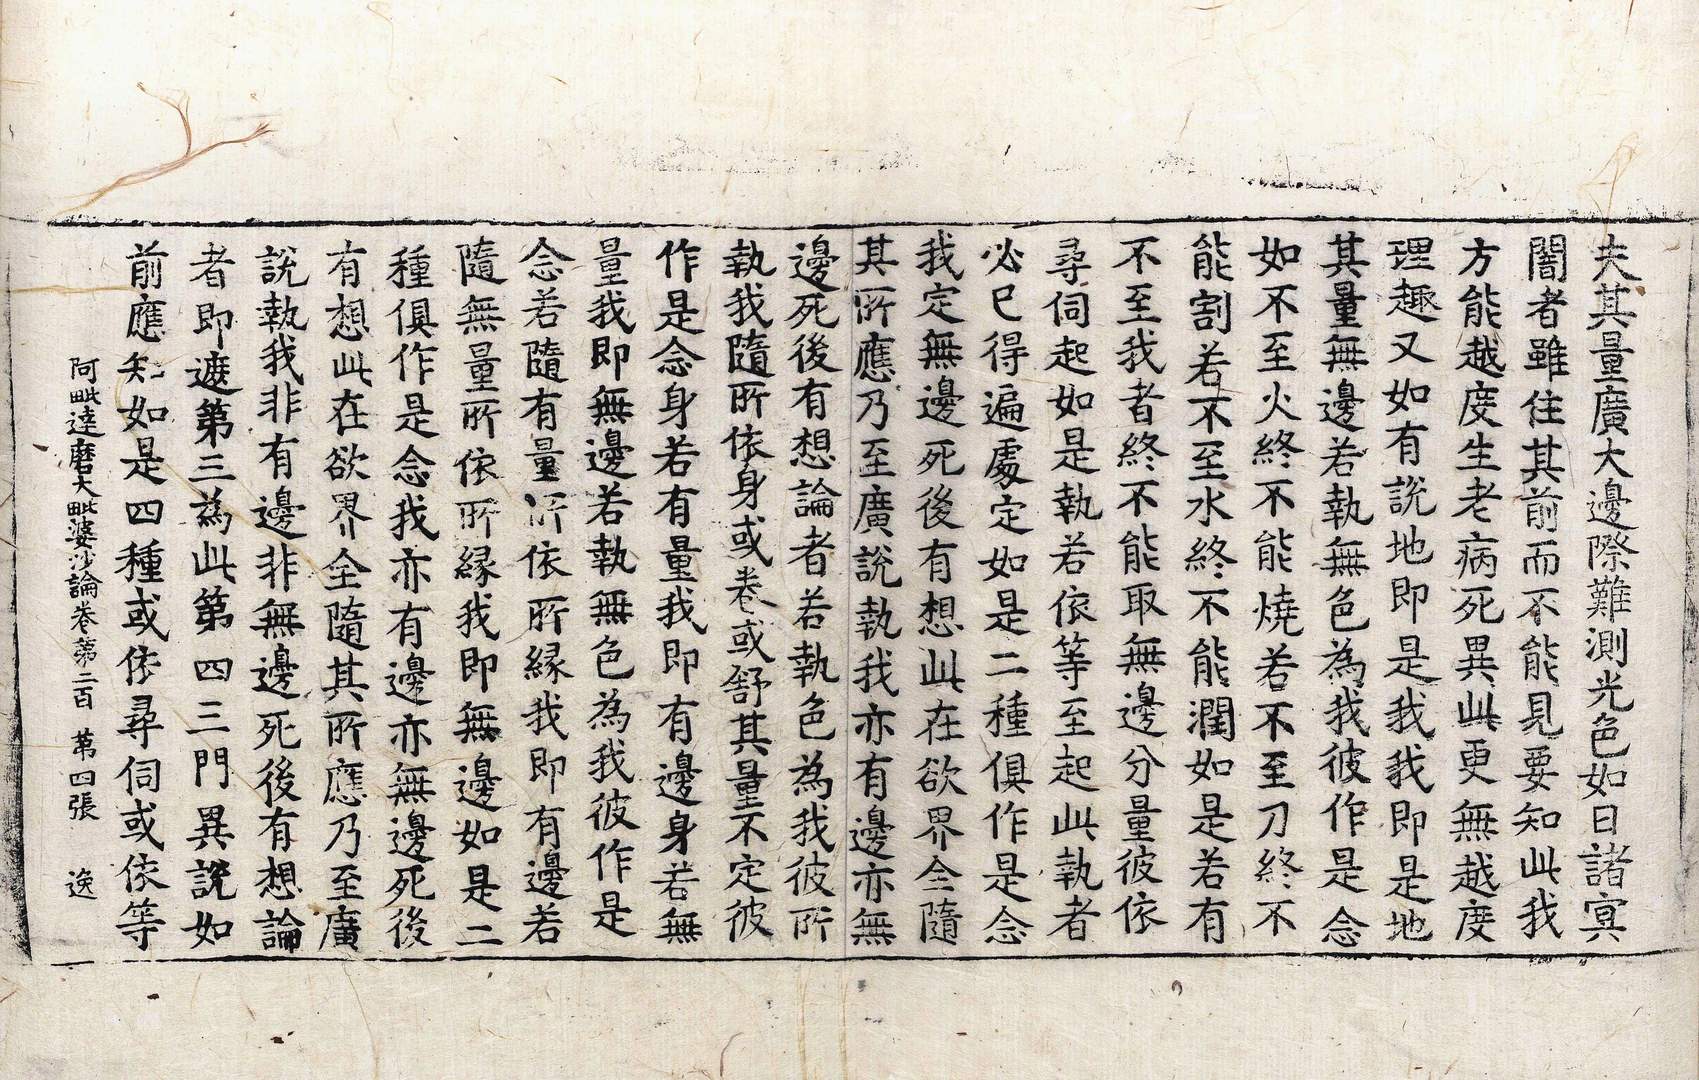 夫其量廣大邊際難測光色如日諸冥
闇者雖住其前而不能見要知此我
方能越度生老病死異此更無越度
理趣又如有說地即是我我即是地
其量無邊若執無色為我彼作是念
如不至火終不能燒若不至刀終不
能割若不至水終不能潤如是若有
不至我者終不能取無邊分量彼依
尋伺起如是執若依等至起此執者
必已得遍處定如是二種俱作是念
我定無邊死後有想此在欲界全隨
其所應乃至廣說執我亦有邊亦無
邊死後有想論者若執色為我彼所
執我隨所依身或卷或舒其量不定彼
作是念身若有量我即有邊身若無
量我即無邊若執無色為我彼作是
念若隨有量所依所緣我即有邊若
隨無量所依所緣我即無邊如是二
種俱作是念我亦有邊亦無邊死後
有想此在欲界全隨其所應乃至廣
說執我非有邊非無邊死後有想論
者即遮第三為此第四三門異說如
前應知如是四種或依尋伺或依等
阿毗達磨大毗婆沙論卷第二百 第四張 逸